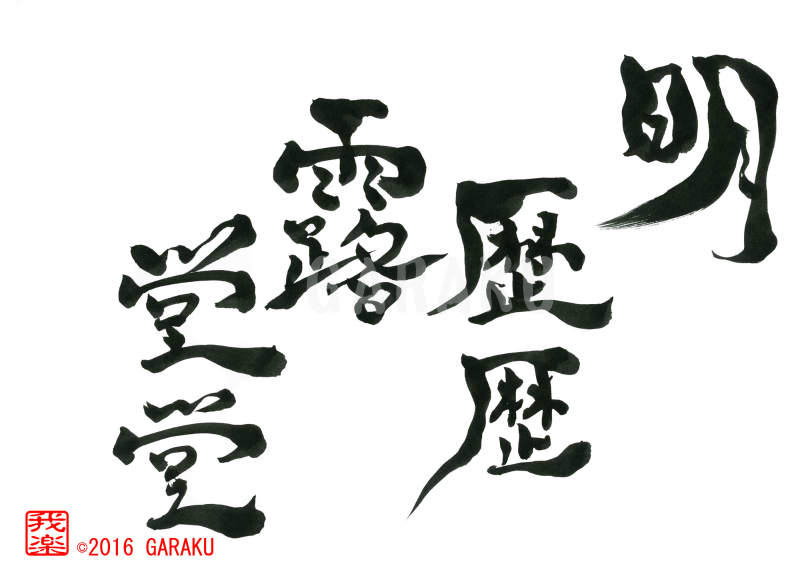 明
歴歴
露
堂堂
GARAKU
我楽
©2016 GARAKU